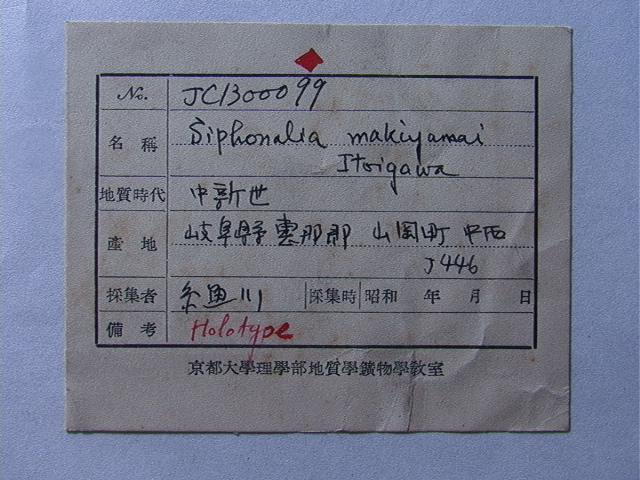 No. JC1300099
名稱 Siphonalia makiyamai
Itoigawa
地質時代 中新世
產地 岐阜県恵那郡 山岡町 中西
J446
採集者 糸魚川 採集時 昭和 年 月 日
備考 Holotype
京都大學理學部地質學鑛物學敎室